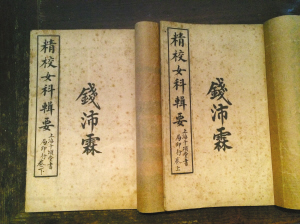 錢沛霖
精校女科輯要
上海千頃堂書
局印行 卷上
錢沛霖
精校女科輯要
上海千頃堂書
局印行 卷下